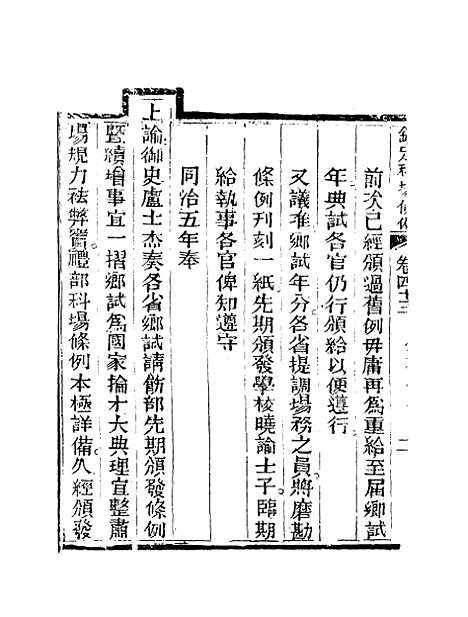 欽定科場條例 卷四十三
前次已經頒過舊例毋庸再爲重給至屆鄉試
年典試各官仍行頒給以便遵行
又議准鄉試年分各省提調場務之員將磨勘
條例刊刻一紙先期頒發學校曉諭士子臨期
給執事各官俾知遵守
同治五年奉
上諭御史盧士杰奏各省鄉試請飭部先期頒發條例
暨續增事宜一摺鄉試爲國家掄才大典理宜整肅
場規力祛弊竇禮部科場條例本極詳備久經頒發